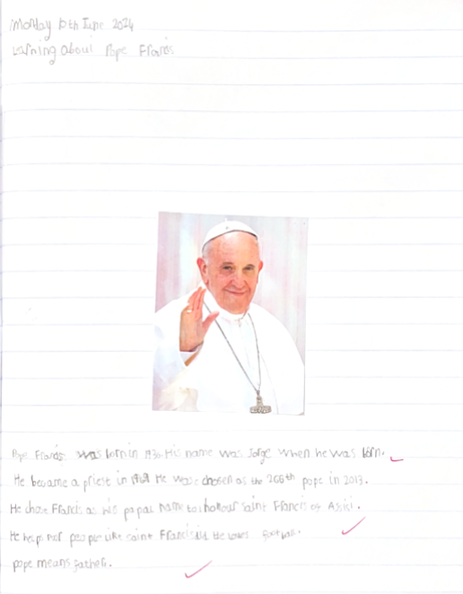 Monday 10th June 2024
Learning about Pope Francis
Pope Francis was born in 1936 His name was Jorge when he was born.
He became a priest in He was chosen as the 266th pope in 2013.
He chose Francis as his papal name to honour Saint Francis of Assisi.
He helps poor people like saint Francis did He loves football.
pope means father.